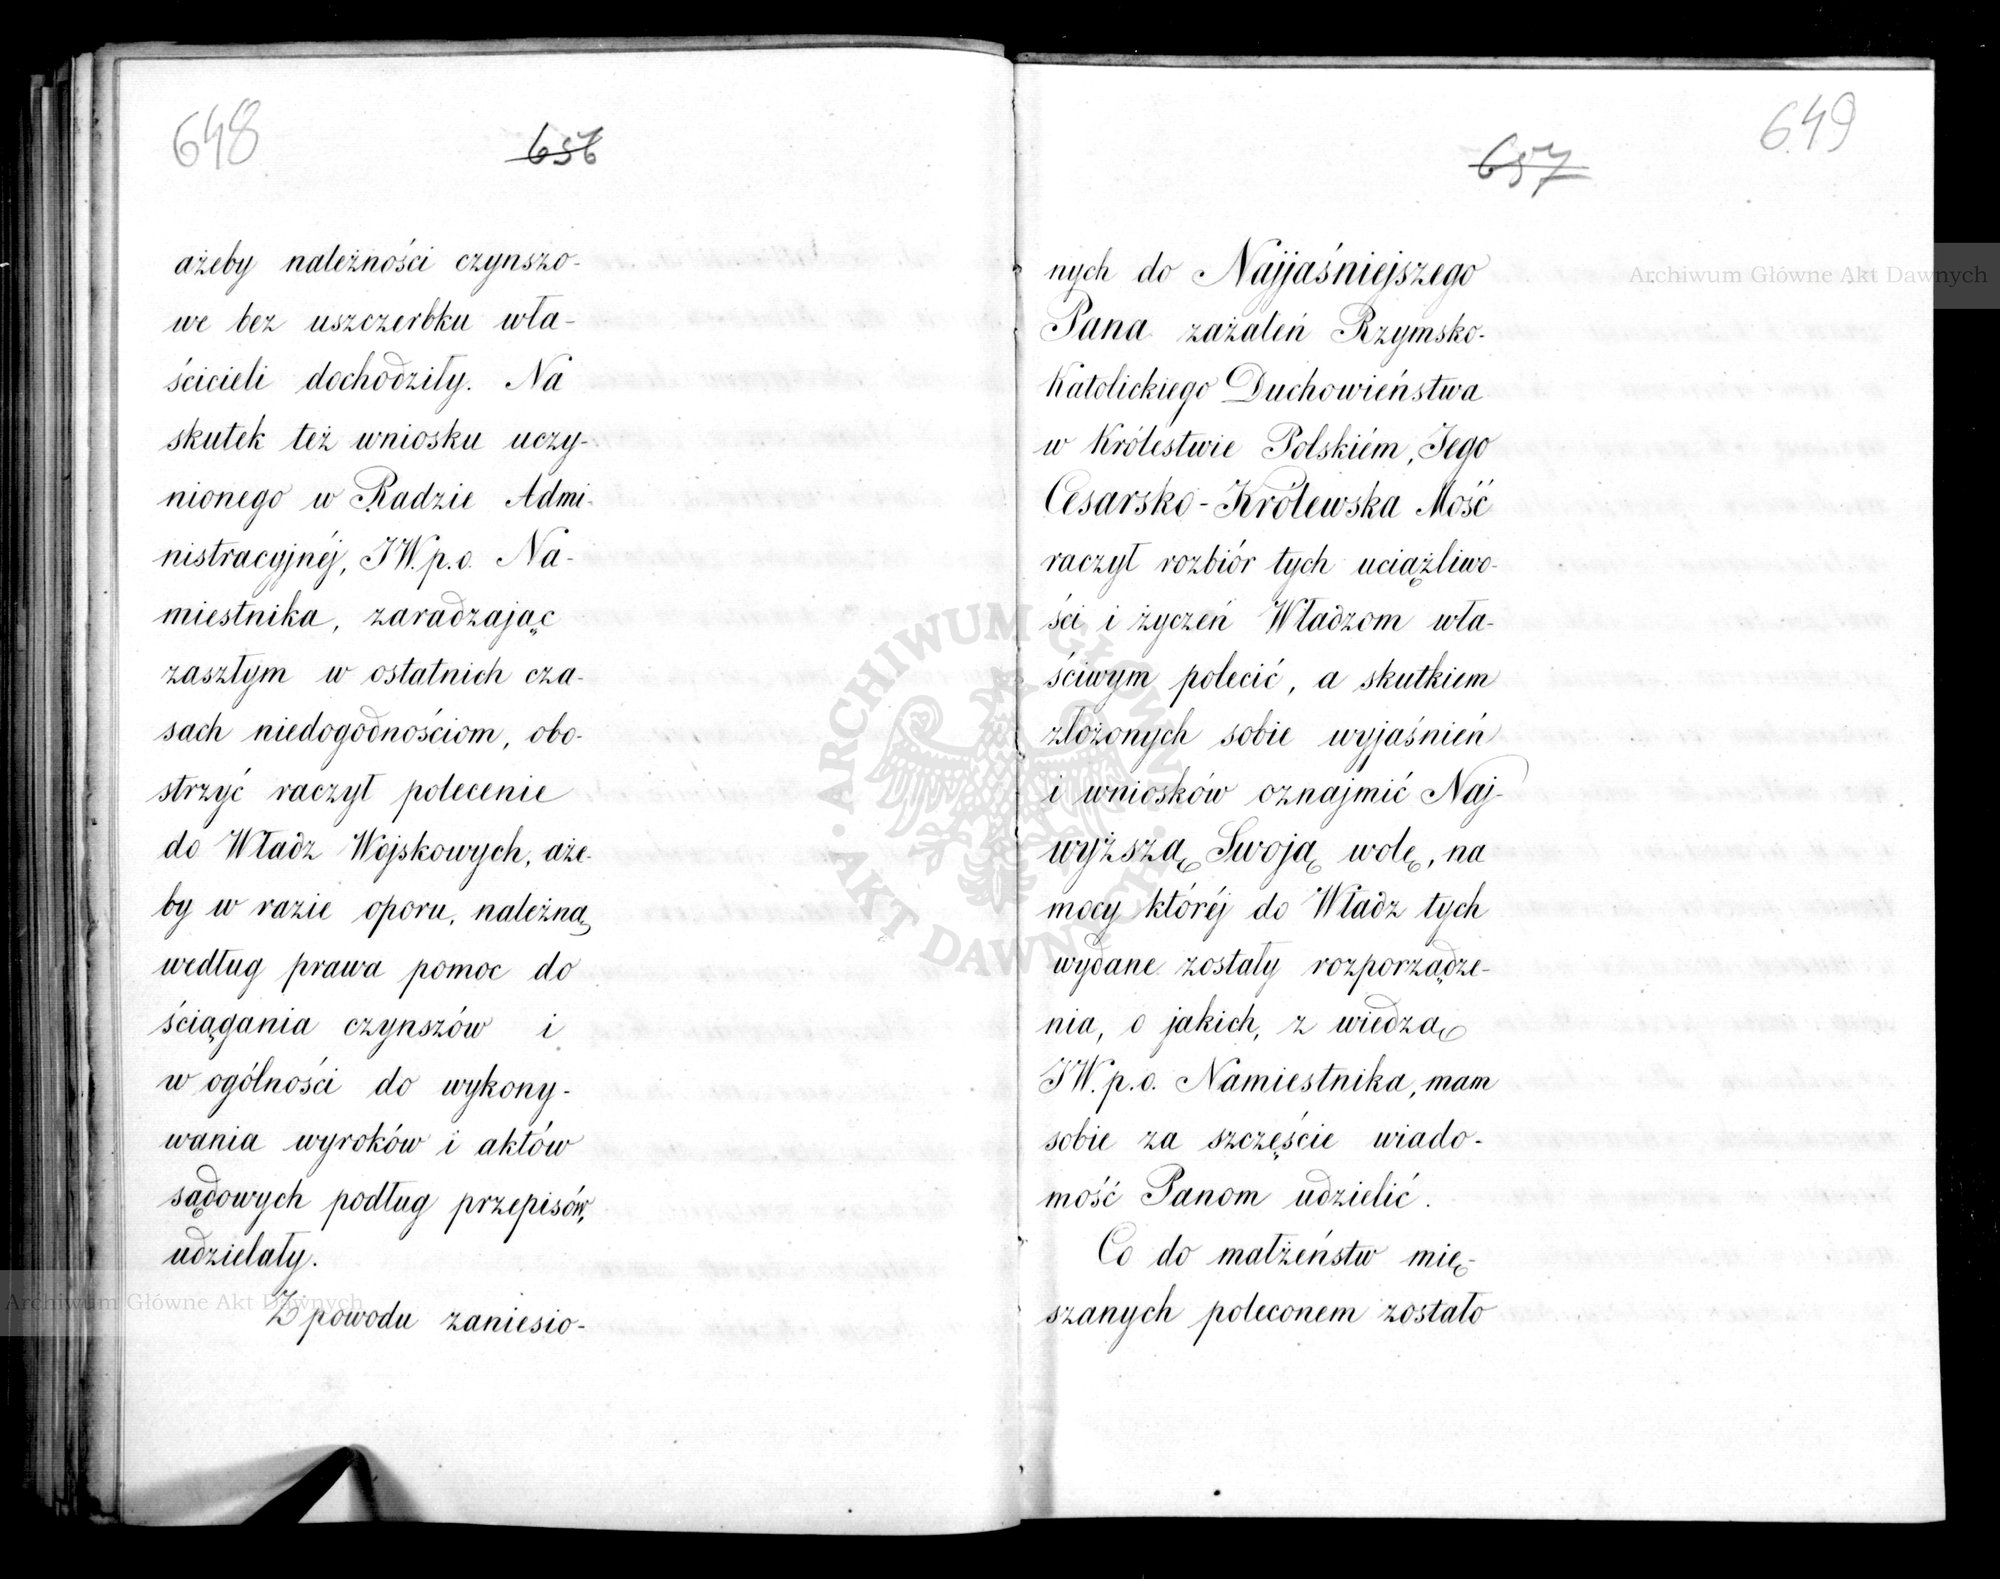 648
656
ażeby należności czynszo-
we bez uszczerbku wła-
ścicieli dochodziły. Na
skutek też wniosku uczy-
nionego w Radzie Admi-
nistracyjnéj, JW. p. o. Na-
miestnika, zaradzając
zaszłym w ostatnich cza-
sach niedogodnościom, obo-
strzyć raczył polecenie
do Władz Wojskowych, aże-
by w razie oporu, należną
według prawa pomoc do
ściągania czynszów i
w ogólności do wykony-
wania wyroków i aktów
sądowych podług przepisów,
udzielały.
Z powodu zaniesio-
649
657
nych do Najjaśniejszego
Pana zażaleń Rzymsko-
Katolickiego Duchowieństwa
w Królestwie Polskiém, Jego
Cesarsko-Królewska Mość
raczył rozbiór tych uciążliwo-
ści i życzeń Władzom wła-
ściwym polecić, a skutkiem
złożonych sobie wyjaśnień
i wniosków oznajmić Naj-
wyższą Swoją wolę, na
mocy któréj do Władz tych
wydane zostały rozporządze-
nia, o jakich, z wiedzą
JW. p. o. Namiestnika, mam
sobie za szczęście wiado-
mość Panom udzielić.
Co do małżeństw mię-
szanych poleconem zostało
Archiwum Główne Akt Dawnych
Archiwum Główne Akt Dawnych
ARCHIWUM GŁÓWNE
AKT DAWNYCH